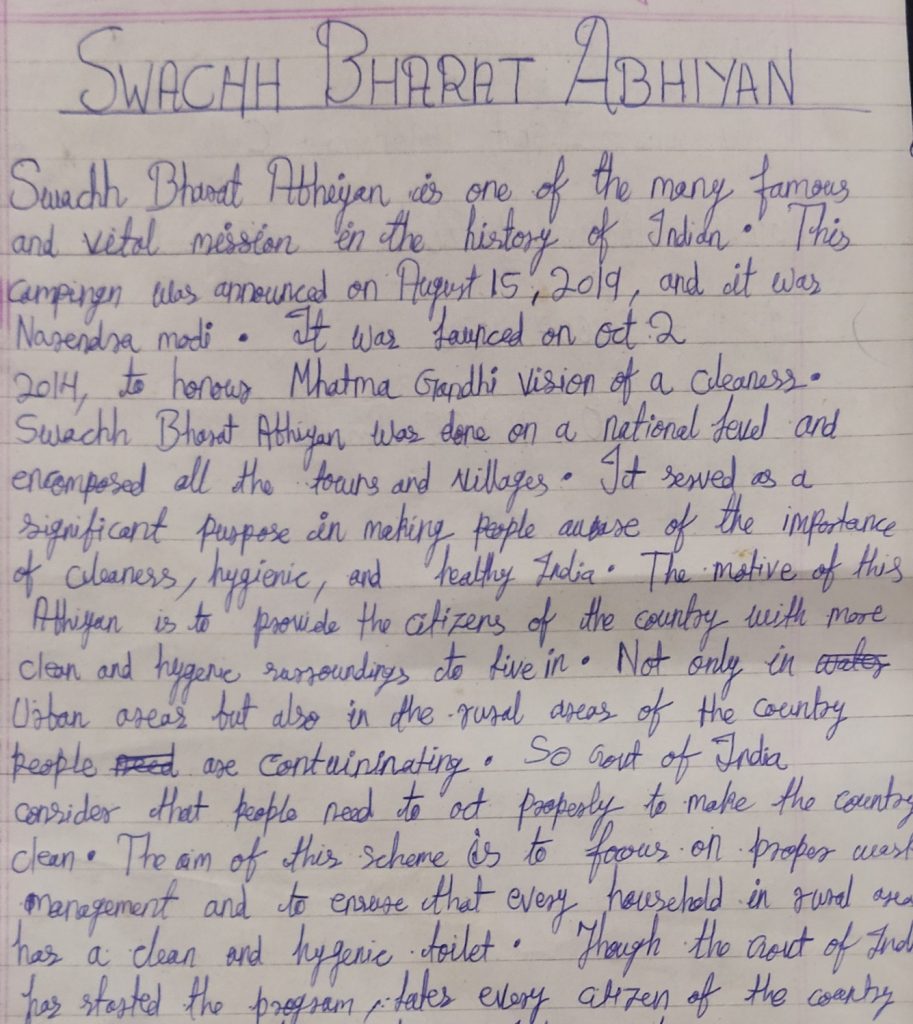 SWACHH BHARAT ABHIYAN
Swachh Bharat Abheiyan is one of the many famous
and vital mission in the history of Indian. This
campingn was announced on August 15, 2019, and it was
Narendra modi. It was launced on oct 2
2014, to honour Mhatma Gandhi vision of a cleaness.
Swachh Bharat Abhiyan was done on a national level and
encomposed all the towns and villages. It served as a
significant purpose in making people aware of the importance
of cleaness, hygienic, and healthy India. The motive of this
Abhiyan is to provide the citizens of the country with more
clean and hygenic surroundings to live in. Not only in water
Urban areas but also in the rural areas of the country
people need are containinating. So Govt of India
consider that people need to act properly to make the country
clean. The aim of this scheme is to focus on proper wast
management and to ensure that every household in rural area
has a clean and hygenic toilet. Though the Govt of Ind
has started the program, later every citizen of the country